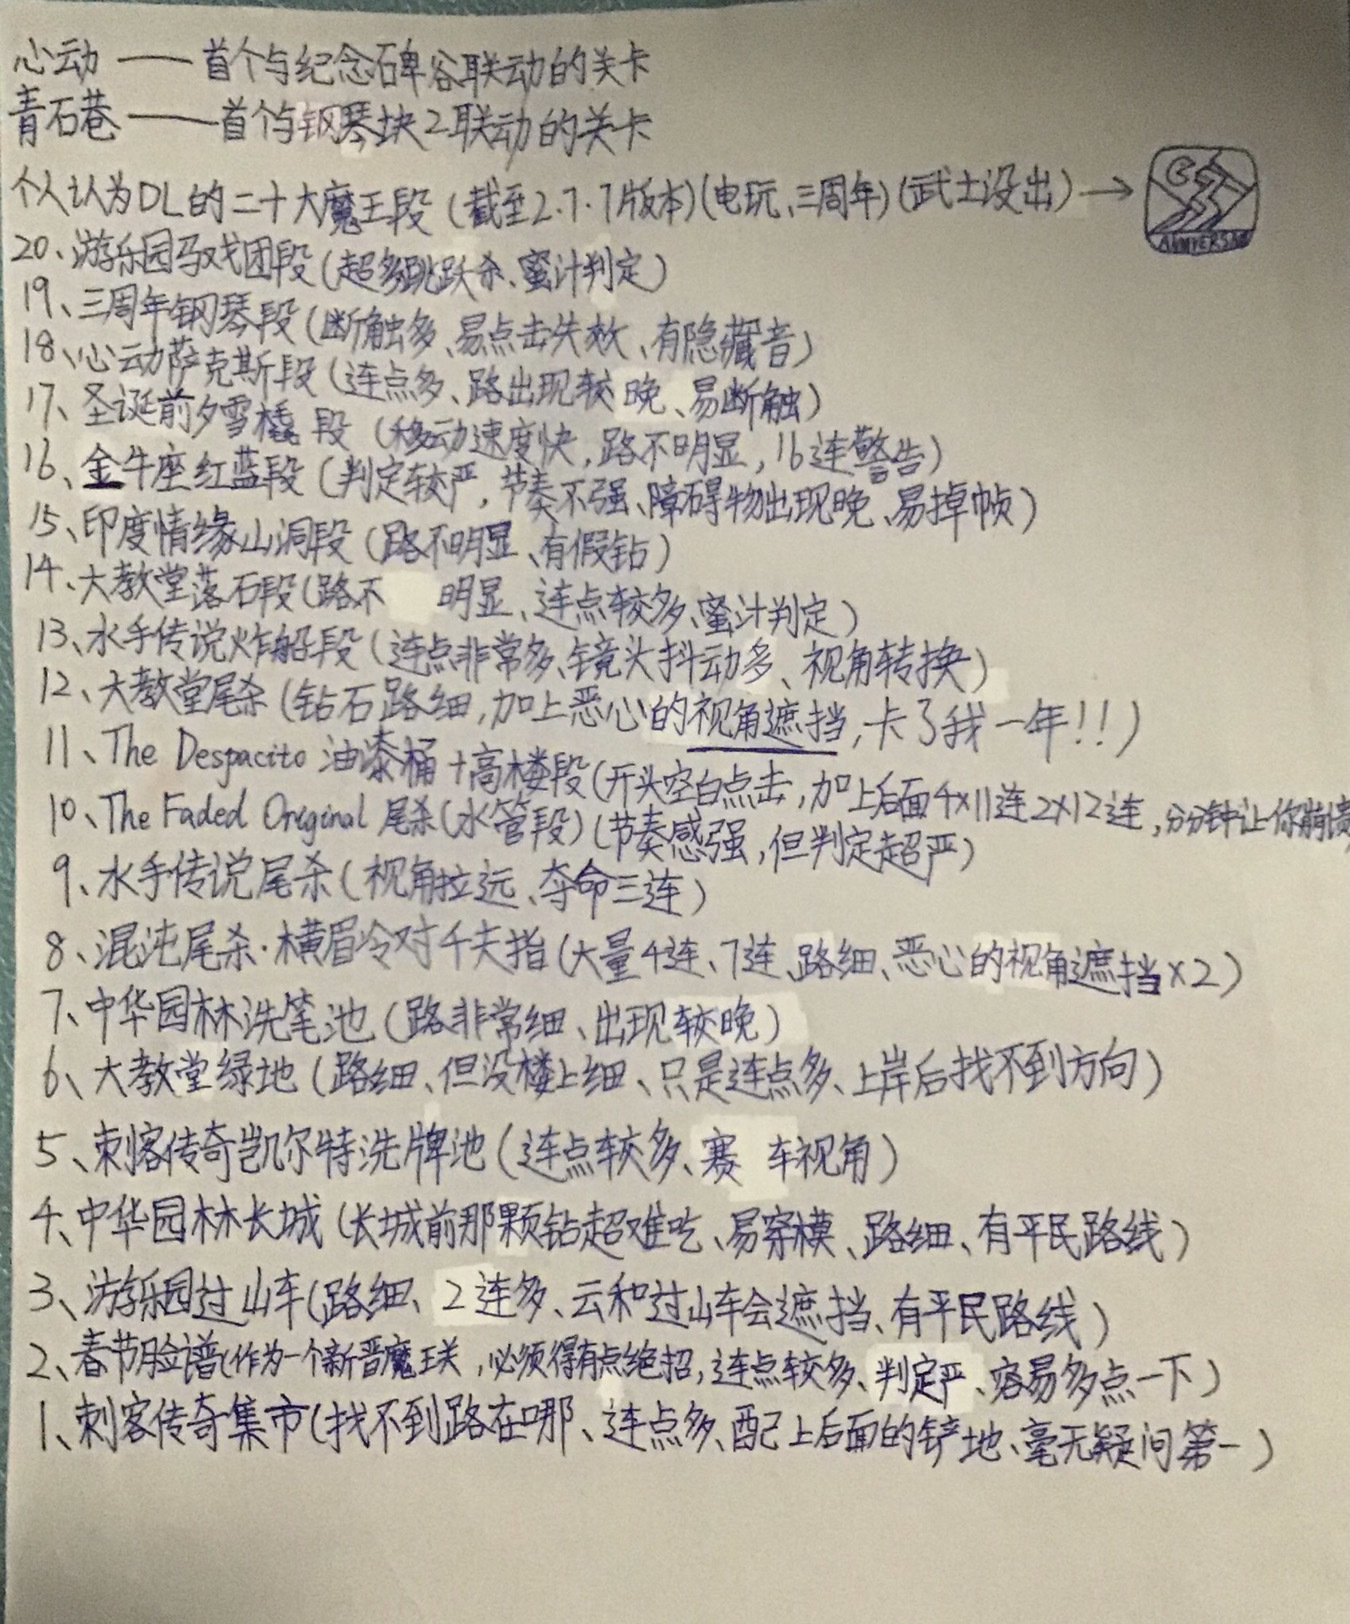 心动——首个与纪念碑谷联动的关卡
青石巷——首个与钢琴块2联动的关卡
个人认为DL的二十大魔王段（截至2.7.7版本）（电玩、三周年）（武士没出）→
ANNIVERSARY
20、游乐园马戏团段（超多跳跃杀、蜜汁判定）
19、三周年钢琴段（断触多、易点击失效、有隐藏音）
18、心动萨克斯段（连点多、路出现较晚、易断触）
17、圣诞前夕雪橇段（移动速度快，路不明显，16连警告）
16、金牛座红蓝段（判定较严，节奏不强、障碍物出现晚、易掉帧）
15、印度情缘山洞段（路不明显、有假钻）
14、大教堂落石段（路不明显、连点较多、蜜汁判定）
13、水手传说炸船段（连点非常多、镜头抖动多、视角转换）
12、大教堂尾杀（钻石路细，加上恶心的视角遮挡，卡了我一年！！）
11、The Despacito 油漆桶+高楼段（开头空白点击，加上后面4×11连2×12连，分分钟让你崩溃
10、The Faded Original 尾杀（水管段）（节奏感强，但判定超严）
9、水手传说尾杀（视角拉远、夺命三连）
8、混沌尾杀·横眉冷对千夫指（大量4连、7连、路细、恶心的视角遮挡×2）
7、中华园林洗笔池（路非常细、出现较晚）
6、大教堂绿地（路细、但没楼上细、只是连点多、上岸后找不到方向）
5、刺客传奇凯尔特洗牌池（连点较多、赛车视角）
4、中华园林长城（长城前那颗钻超难吃、易穿模、路细、有平民路线）
3、游乐园过山车（路细、2连多、云和过山车会遮挡、有平民路线）
2、春节脸谱（作为一个新晋魔王关，必须得有点绝招，连点较多、判定严、容易多点一下）
1、刺客传奇集市（找不到路在哪、连点多、配上后面的铲地、毫无疑问第一）